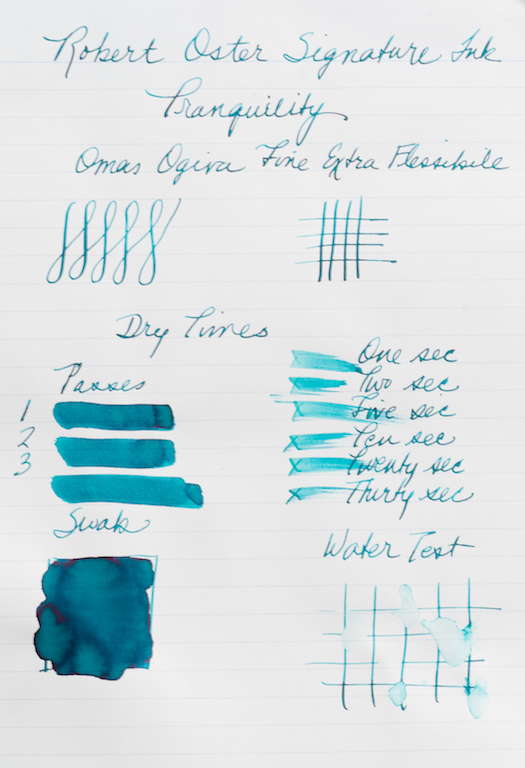 Robert Oster Signature Ink
Tranquility
Omas Ogiva Fine Extra Flessibile
Dry Times
Passes
1
2
3
One sec
Two sec
Five sec
Ten sec
Twenty sec
Thirty sec
Swab
Water Test